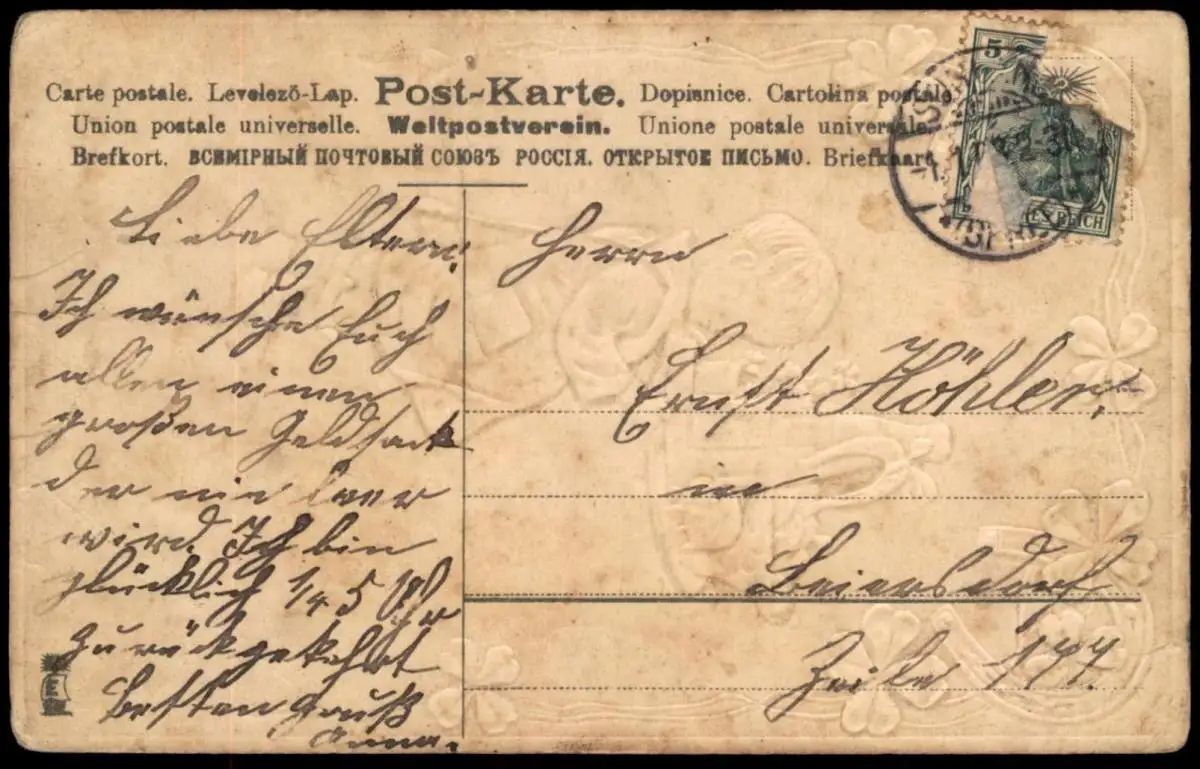 Carte postale. Levelező-Lap. Post-Karte. Dopisnice. Cartolina postale.
Union postale universelle. Weltpostverein. Unione postale universale.
Brefkort. ВСЕМІРНЫЙ ПОЧТОВЫЙ СОЮЗЪ РОССІЯ. ОТКРЫТОЕ ПИСЬМО. Briefkaart.
5
REICH
Liebe Eltern.
Ich wünsche Euch
allen einen
großen Geldsack
der nie leer
wird. Ich bin
glücklich 1/4 5 Uhr
zurückgekehrt
Besten Gruß
Anna.
Herrn
Ernst Höhler.
in
Beiersdorf
Zeile 177.